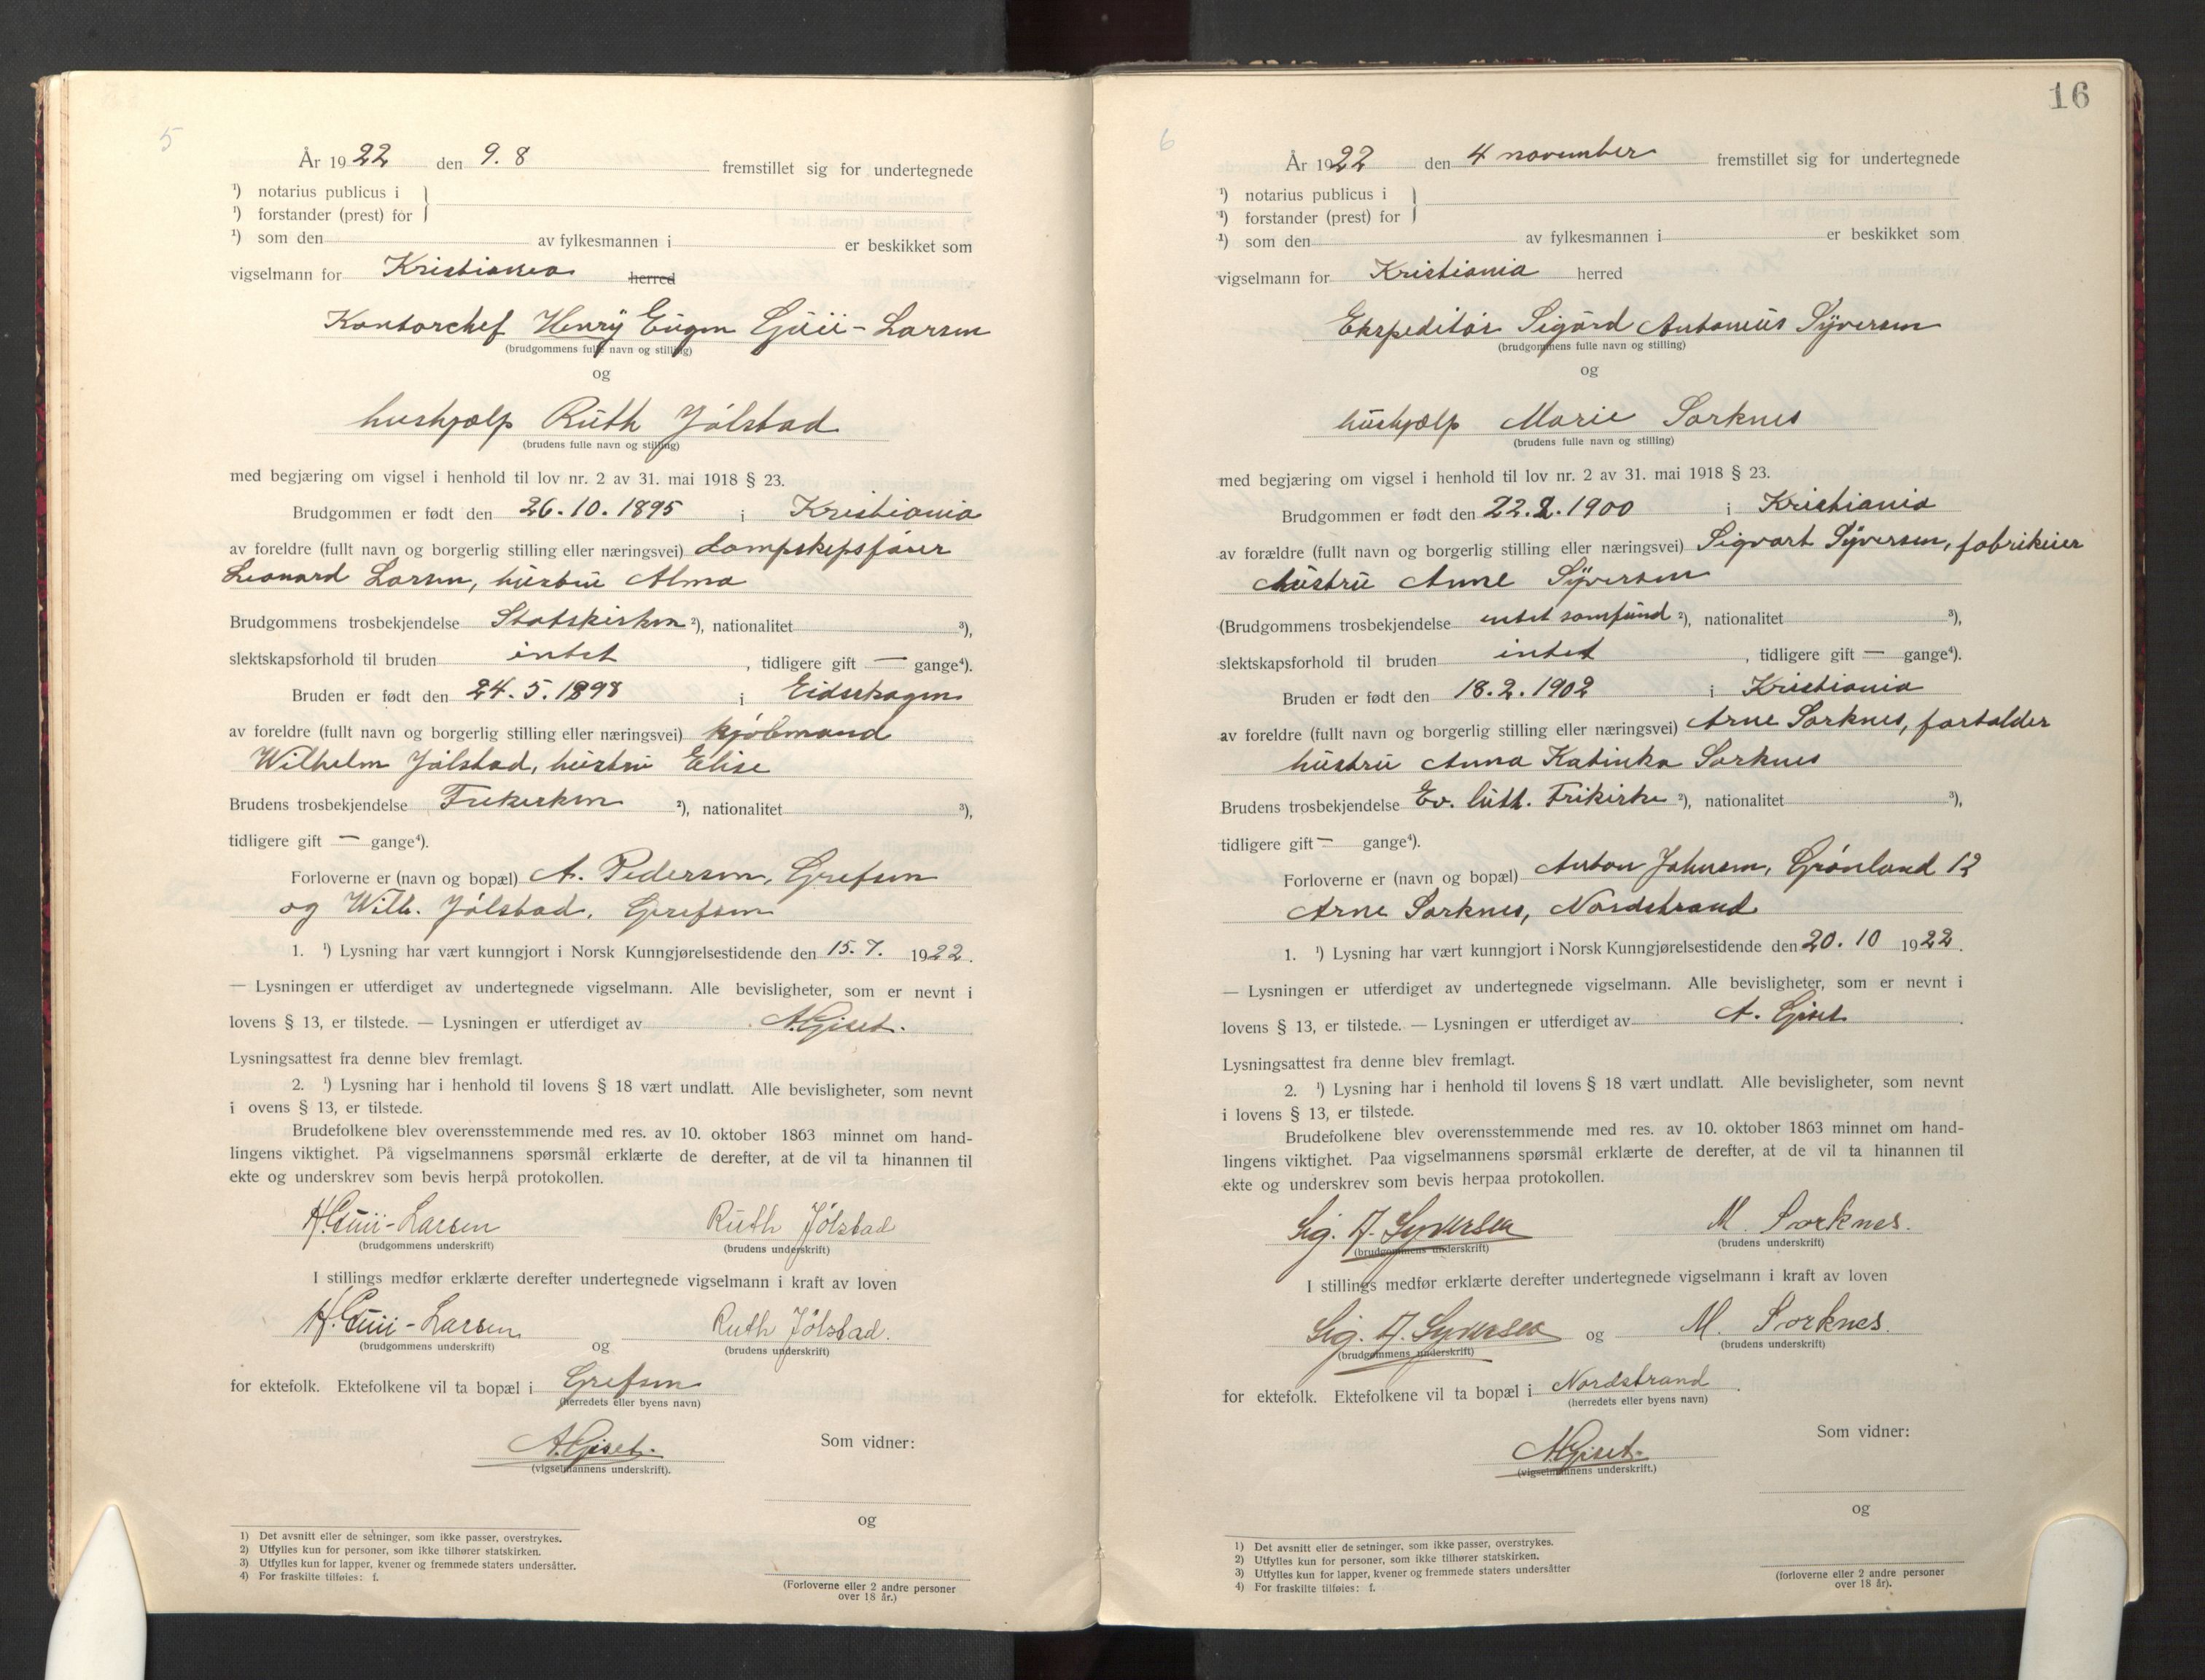 5
År 1922 den 9. 8 fremstillet sig for undertegnede
¹) notarius publicus i
¹) forstander (prest) for
¹) som den av fylkesmannen i er beskikket som
vigselmann for Kristiania herred
Kontorchef Henry Eugen Guii-Larsen
(brudgommens fulle navn og stilling)
og
hushjælp Ruth Jølstad
(brudens fulle navn og stilling)
med begjæring om vigsel i henhold til lov nr. 2 av 31. mai 1918 § 23.
Brudgommen er født den 26. 10. 1895 i Kristiania
av foreldre (fullt navn og borgerlig stilling eller næringsvei) dampskipsfører
Leonard Larsen, hustru Alma
Brudgommens trosbekjendelse Statskirken ²), nationalitet ³),
slektskapsforhold til bruden intet, tidligere gift — gange⁴).
Bruden er født den 24. 5. 1898 i Eidsskogen
av foreldre (fullt navn og borgerlig stilling eller næringsvei) kjøbmand
Wilhelm Jølstad, hustru Elise
Brudens trosbekjendelse Frikirken ²), nationalitet ³),
tidligere gift — gange⁴).
Forloverne er (navn og bopæl) A. Pedersen, Grefsen
og Wilh. Jølstad, Grefsen
1. ¹) Lysning har vært kunngjort i Norsk Kunngjørelsestidende den 15. 7. 1922.
— Lysningen er utferdiget av undertegnede vigselmann. Alle bevisligheter, som er nevnt i
lovens § 13, er tilstede. — Lysningen er utferdiget av A. Giset.
Lysningsattest fra denne blev fremlagt.
2. ¹) Lysning har i henhold til lovens § 18 vært undlatt. Alle bevisligheter, som nevnt
i ovens § 13, er tilstede.
Brudefolkene blev overensstemmende med res. av 10. oktober 1863 minnet om hand-
lingens viktighet. På vigselmannens spørsmål erklærte de derefter, at de vil ta hinannen til
ekte og underskrev som bevis herpå protokollen.
H. Guii-Larsen Ruth Jølstad
(brudgommens underskrift) (brudens underskrift)
I stillings medfør erklærte derefter undertegnede vigselmann i kraft av loven
H. Guii-Larsen og Ruth Jølstad.
(brudgommens underskrift) (brudens underskrift)
for ektefolk. Ektefolkene vil ta bopæl i Grefsen
(herredets eller byens navn)
A. Giset.
(vigselmannens underskrift).
Som vidner:
og
(Forloverne eller 2 andre personer
over 18 år.)
1) Det avsnitt eller de setninger, som ikke passer, overstrykes.
2) Utfylles kun for personer, som ikke tilhører statskirken.
3) Utfylles kun for lapper, kvener og fremmede staters undersåtter.
4) For fraskilte tilføies: f.
16
6
År 1922 den 4 november fremstillet sig for undertegnede
¹) notarius publicus i
¹) forstander (prest) for
¹) som den av fylkesmannen i er beskikket som
vigselmann for Kristiania herred
Ekspeditør Sigurd Antonius Syversen
(brudgommens fulle navn og stilling)
og
hushjælp Marie Sorknes
(brudens fulle navn og stilling)
med begjæring om vigsel i henhold til lov nr. 2 av 31. mai 1918 § 23.
Brudgommen er født den 22. 2. 1900 i Kristiania
av forældre (fullt navn og borgerlig stilling eller næringsvei) Sigvart Syversen, fabrikeier
hustru Anne Syversen
(Brudgommens trosbekjendelse intet samfund ²), nationalitet ³),
slektskapsforhold til bruden intet, tidligere gift — gange⁴).
Bruden er født den 18. 2. 1902 i Kristiania
av foreldre (fullt navn og borgerlig stilling eller næringsvei) Arne Sorknes, forvalder
hustru Anna Katinka Sorknes
Brudens trosbekjendelse Ev. luth. Frikirke ²), nationalitet ³),
tidligere gift — gange⁴).
Forloverne er (navn og bopæl) Anton Johnsen, Grønland 12
Arne Sorknes, Nordstrand
1. ¹) Lysning har vært kunngjort i Norsk Kunngjørelsestidende den 20. 10 1922.
— Lysningen er utferdiget av undertegnede vigselmann. Alle bevisligheter, som er nevnt i
lovens § 13, er tilstede. — Lysningen er utferdiget av A. Giset.
Lysningsattest fra denne blev fremlagt.
2. ¹) Lysning har i henhold til lovens § 18 vært undlatt. Alle bevisligheter, som nevnt
i lovens § 13, er tilstede.
Brudefolkene blev overensstemmende med res. av 10. oktober 1863 minnet om hand-
lingens viktighet. Paa vigselmannens spørsmål erklærte de derefter, at de vil ta hinannen til
ekte og underskrev som bevis herpaa protokollen.
Sig. A. Syversen M. Sorknes.
(brudgommens underskrift) (brudens underskrift)
I stillings medfør erklærte derefter undertegnede vigselmann i kraft av loven
Sig. A. Syversen og M. Sorknes.
(brudgommens underskrift) (brudens underskrift)
for ektefolk. Ektefolkene vil ta bopæl i Nordstrand.
(herredets eller byens navn)
A. Giset.
(vigselmannens underskrift.)
Som vidner:
og
(forloverne eller 2 andre personer
over 18 år).
1) Det avsnitt eller de setninger, som ikke passer, overstrykes.
2) Utfylles kun for personer, som ikke tilhører statskirken.
3) Utfylles kun for lapper, kvener og fremmede staters undersåtter
4) For fraskilte tilføies: f.